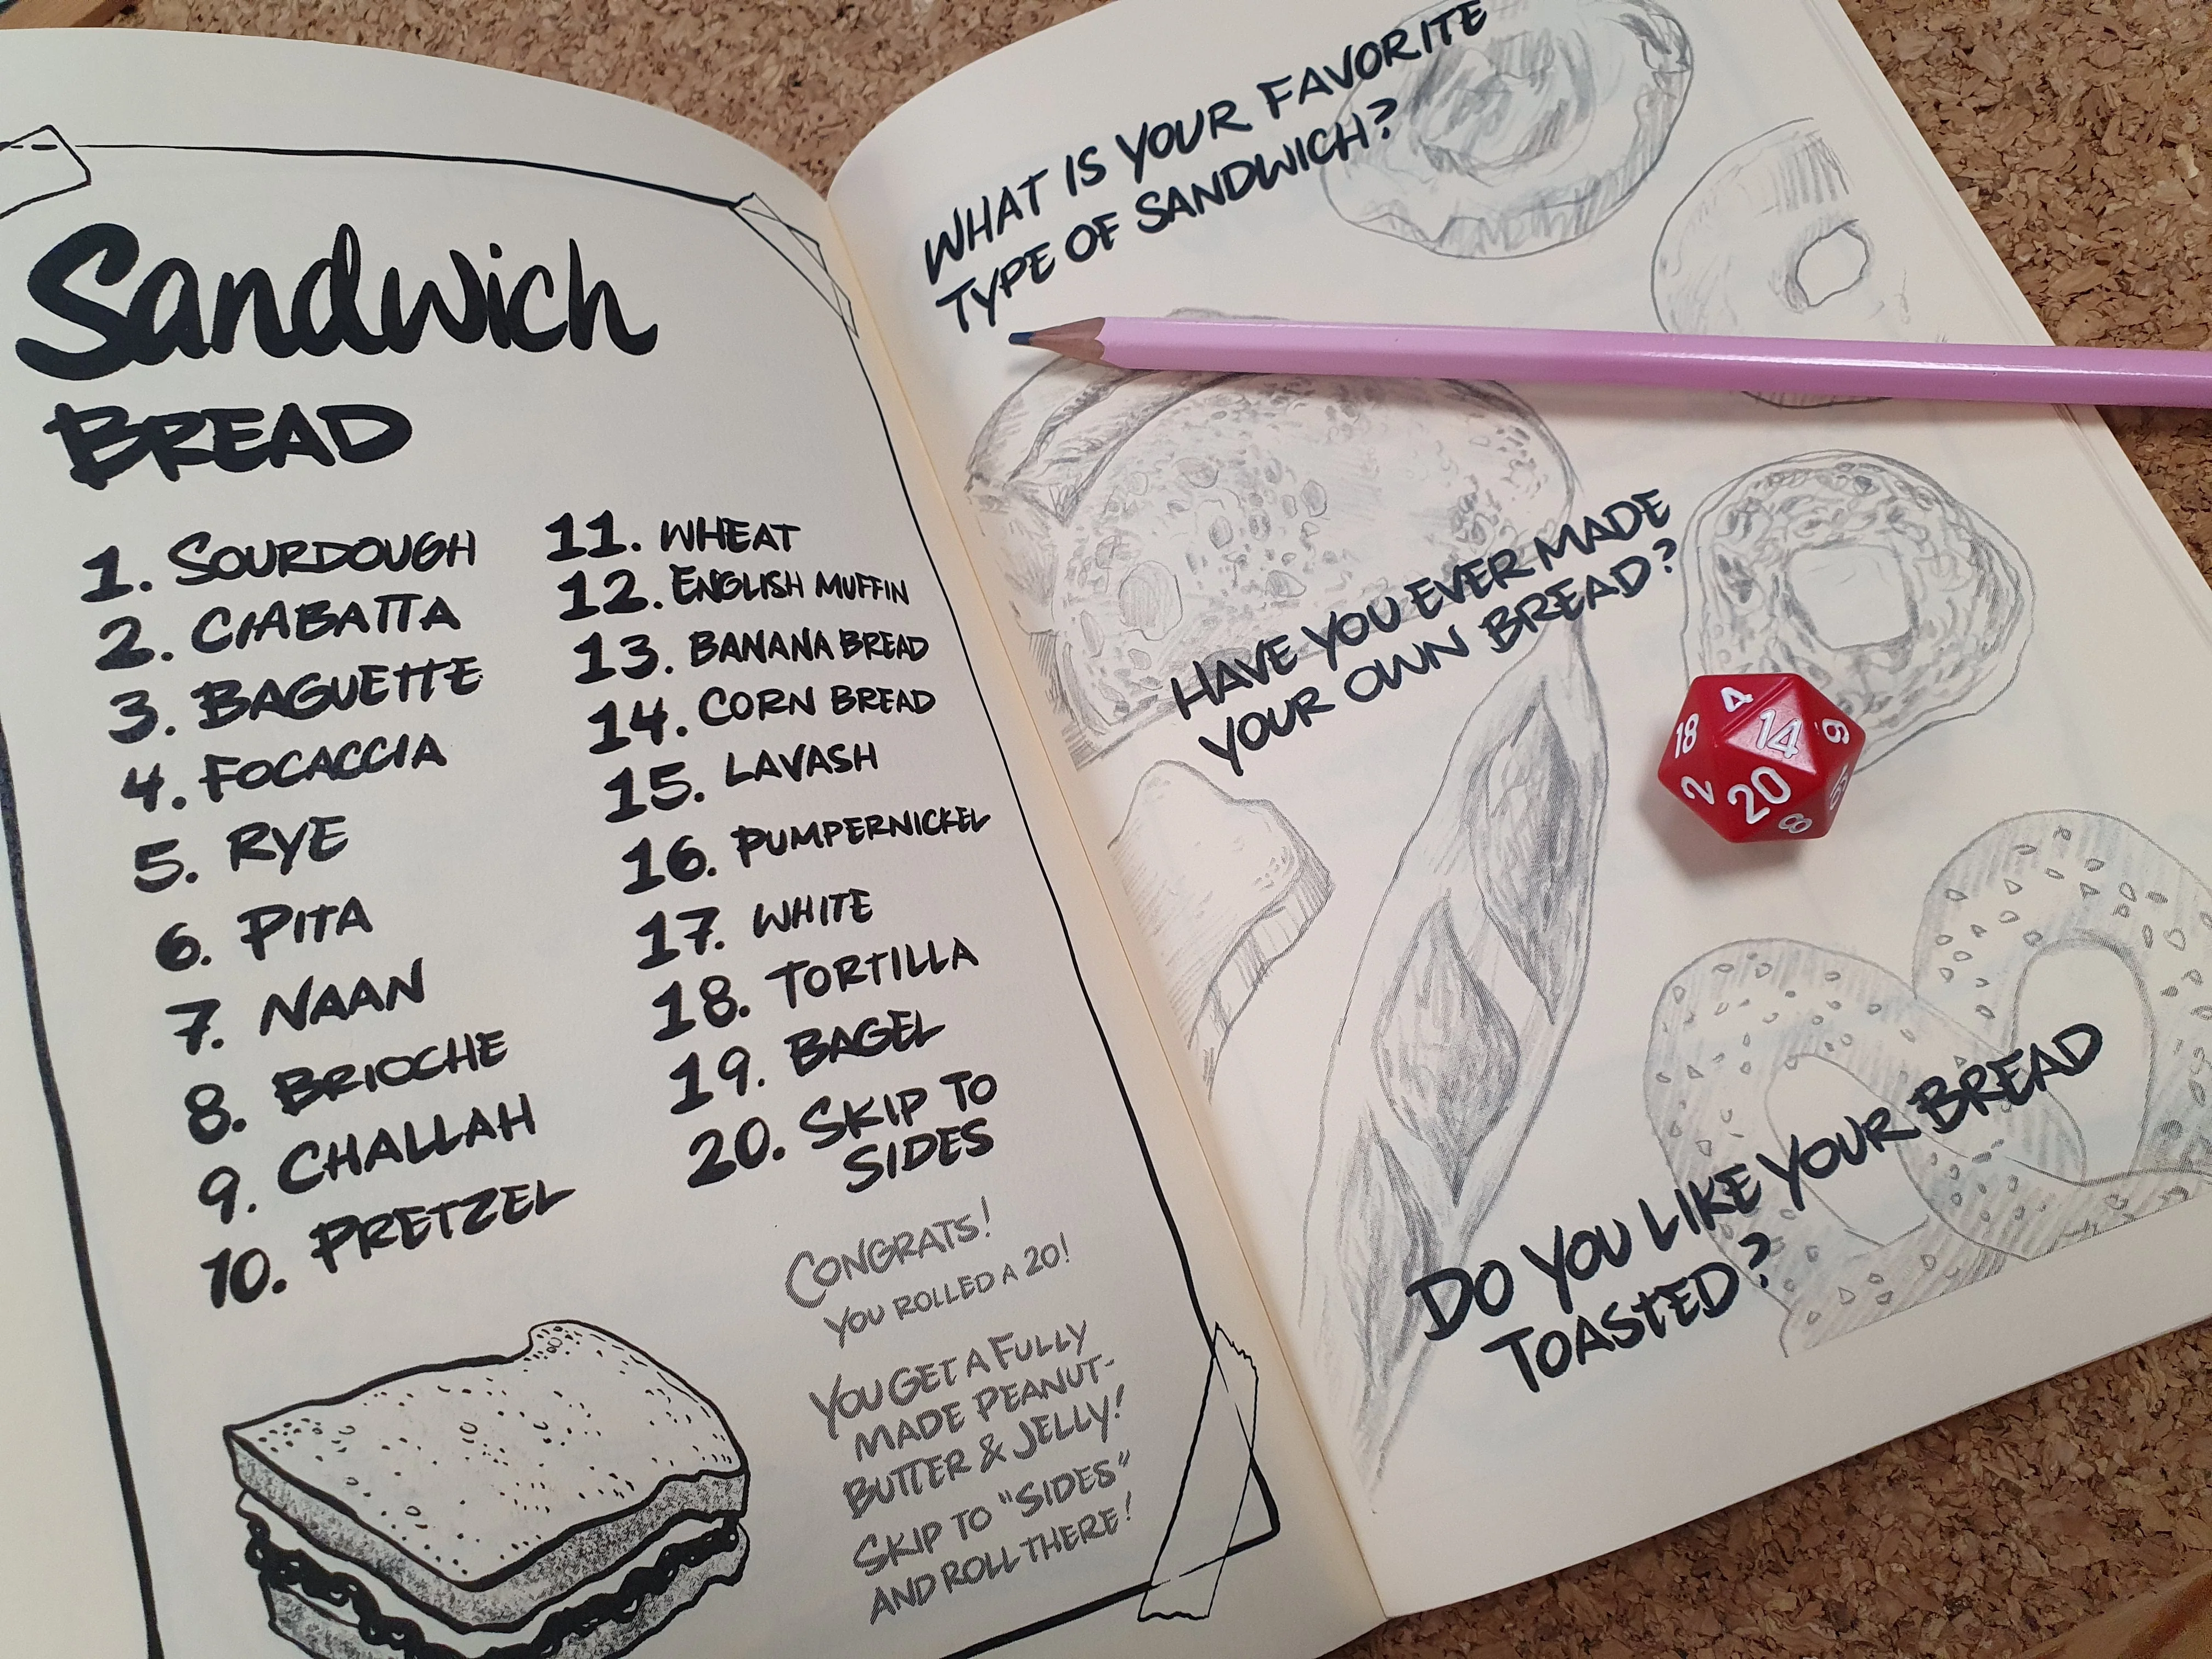 Sandwich
BREAD
1. SOURDOUGH
2. CIABATTA
3. BAGUETTE
4. FOCACCIA
5. RYE
6. PITA
7. NAAN
8. BRIOCHE
9. CHALLAH
10. PRETZEL
11. WHEAT
12. ENGLISH MUFFIN
13. BANANA BREAD
14. CORN BREAD
15. LAVASH
16. PUMPERNICKEL
17. WHITE
18. TORTILLA
19. BAGEL
20. SKIP TO
SIDES
CONGRATS!
YOU ROLLED A 20!
YOU GET A FULLY
MADE PEANUT-
BUTTER & JELLY!
SKIP TO "SIDES"
AND ROLL THERE!
WHAT IS YOUR FAVORITE
TYPE OF SANDWICH?
HAVE YOU EVER MADE
YOUR OWN BREAD?
4
18
14
2
20
8
DO YOU LIKE YOUR BREAD
TOASTED?